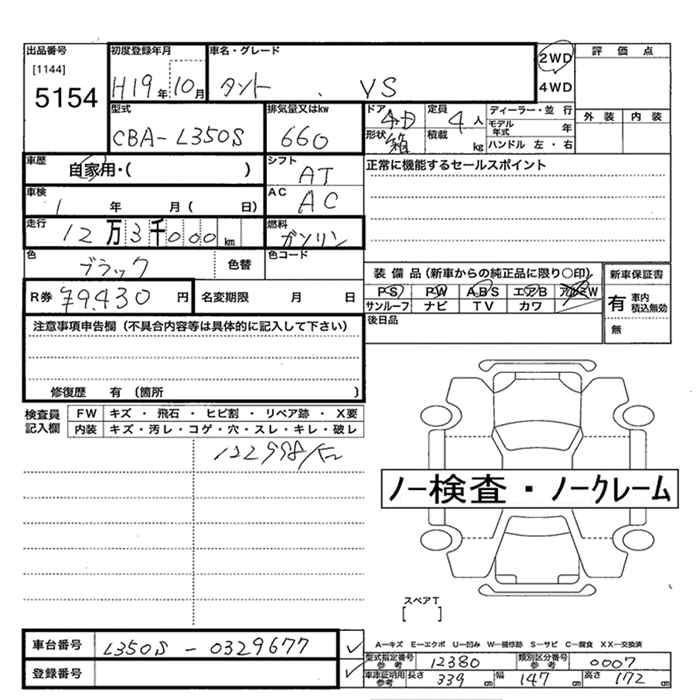 出品番号
[1144]
5154
初度登録年月
H19年10月
車名・グレード
タント . VS
2WD
4WD
評価点
外装 内装
型式
CBA-L350S
排気量又はkw
660
ドア
形状
箱
定員
4人
積載
kg
ディーラー・並行
モデル年式 年
ハンドル 左・右
車歴
自家用・( )
シフト
AT
正常に機能するセールスポイント
車検
1 年 月( 日)
AC
AC
走行
12万3千000km
燃料
ガソリン
色
ブラック
色替
色コード
R券
¥9,430円
名変期限 月 日
装備品(新車からの純正品に限り○印)
PS PW ABS エアB アルミW
サンルーフ ナビ TV カワ
新車保証書
有 車内積込無効
無
後日品
注意事項申告欄(不具合内容等は具体的に記入して下さい)
修復歴 有(箇所 )
検査員記入欄
FW キズ・飛石・ヒビ割・リペア跡・X要
内装 キズ・汚レ・コゲ・穴・スレ・キレ・破レ
122998/km
ノー検査・ノークレーム
スペアT
[ ]
車台番号
L350S-0329677
登録番号
A―キズ E―エクボ U―凹み W―補修跡 S―サビ C―腐食 XX―交換済
型式指定番号 参考 12380
類別区分番号 参考 0007
車庫証明用 参考 長さ 339cm 幅 147cm 高さ 172cm